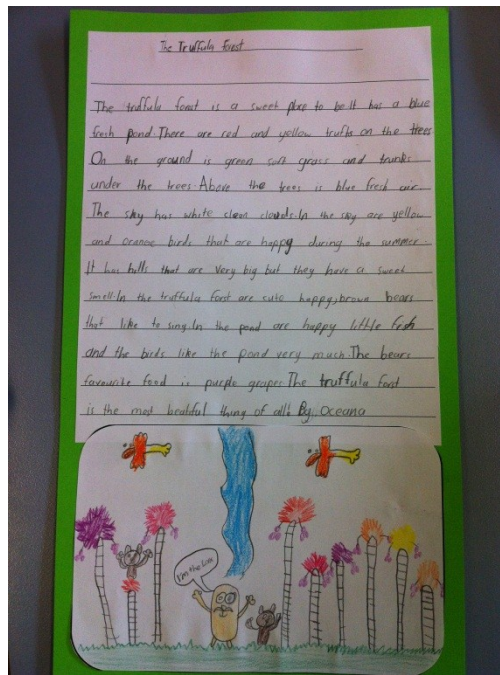 The Truffula forst
The truffula forst is a sweet place to be It has a blue
fresh pond. There are red and yellow trufts on the trees
On the ground is green soft grass and trunks
under the trees. Above the trees is blue fresh air
The sky has white clean clouds. In the sky are yellow
and orange birds that are happy during the summer.
It has hills that are very big but they have a sweet
smell. In the truffula forst are cute happy, brown bears
that like to sing. In the pond are happy little fish
and the birds like the pond very much. The bears
favourite food is purple grapes. The truffula forst
is the most beatiful thing of all! By, Oceana
I'm the Lorax